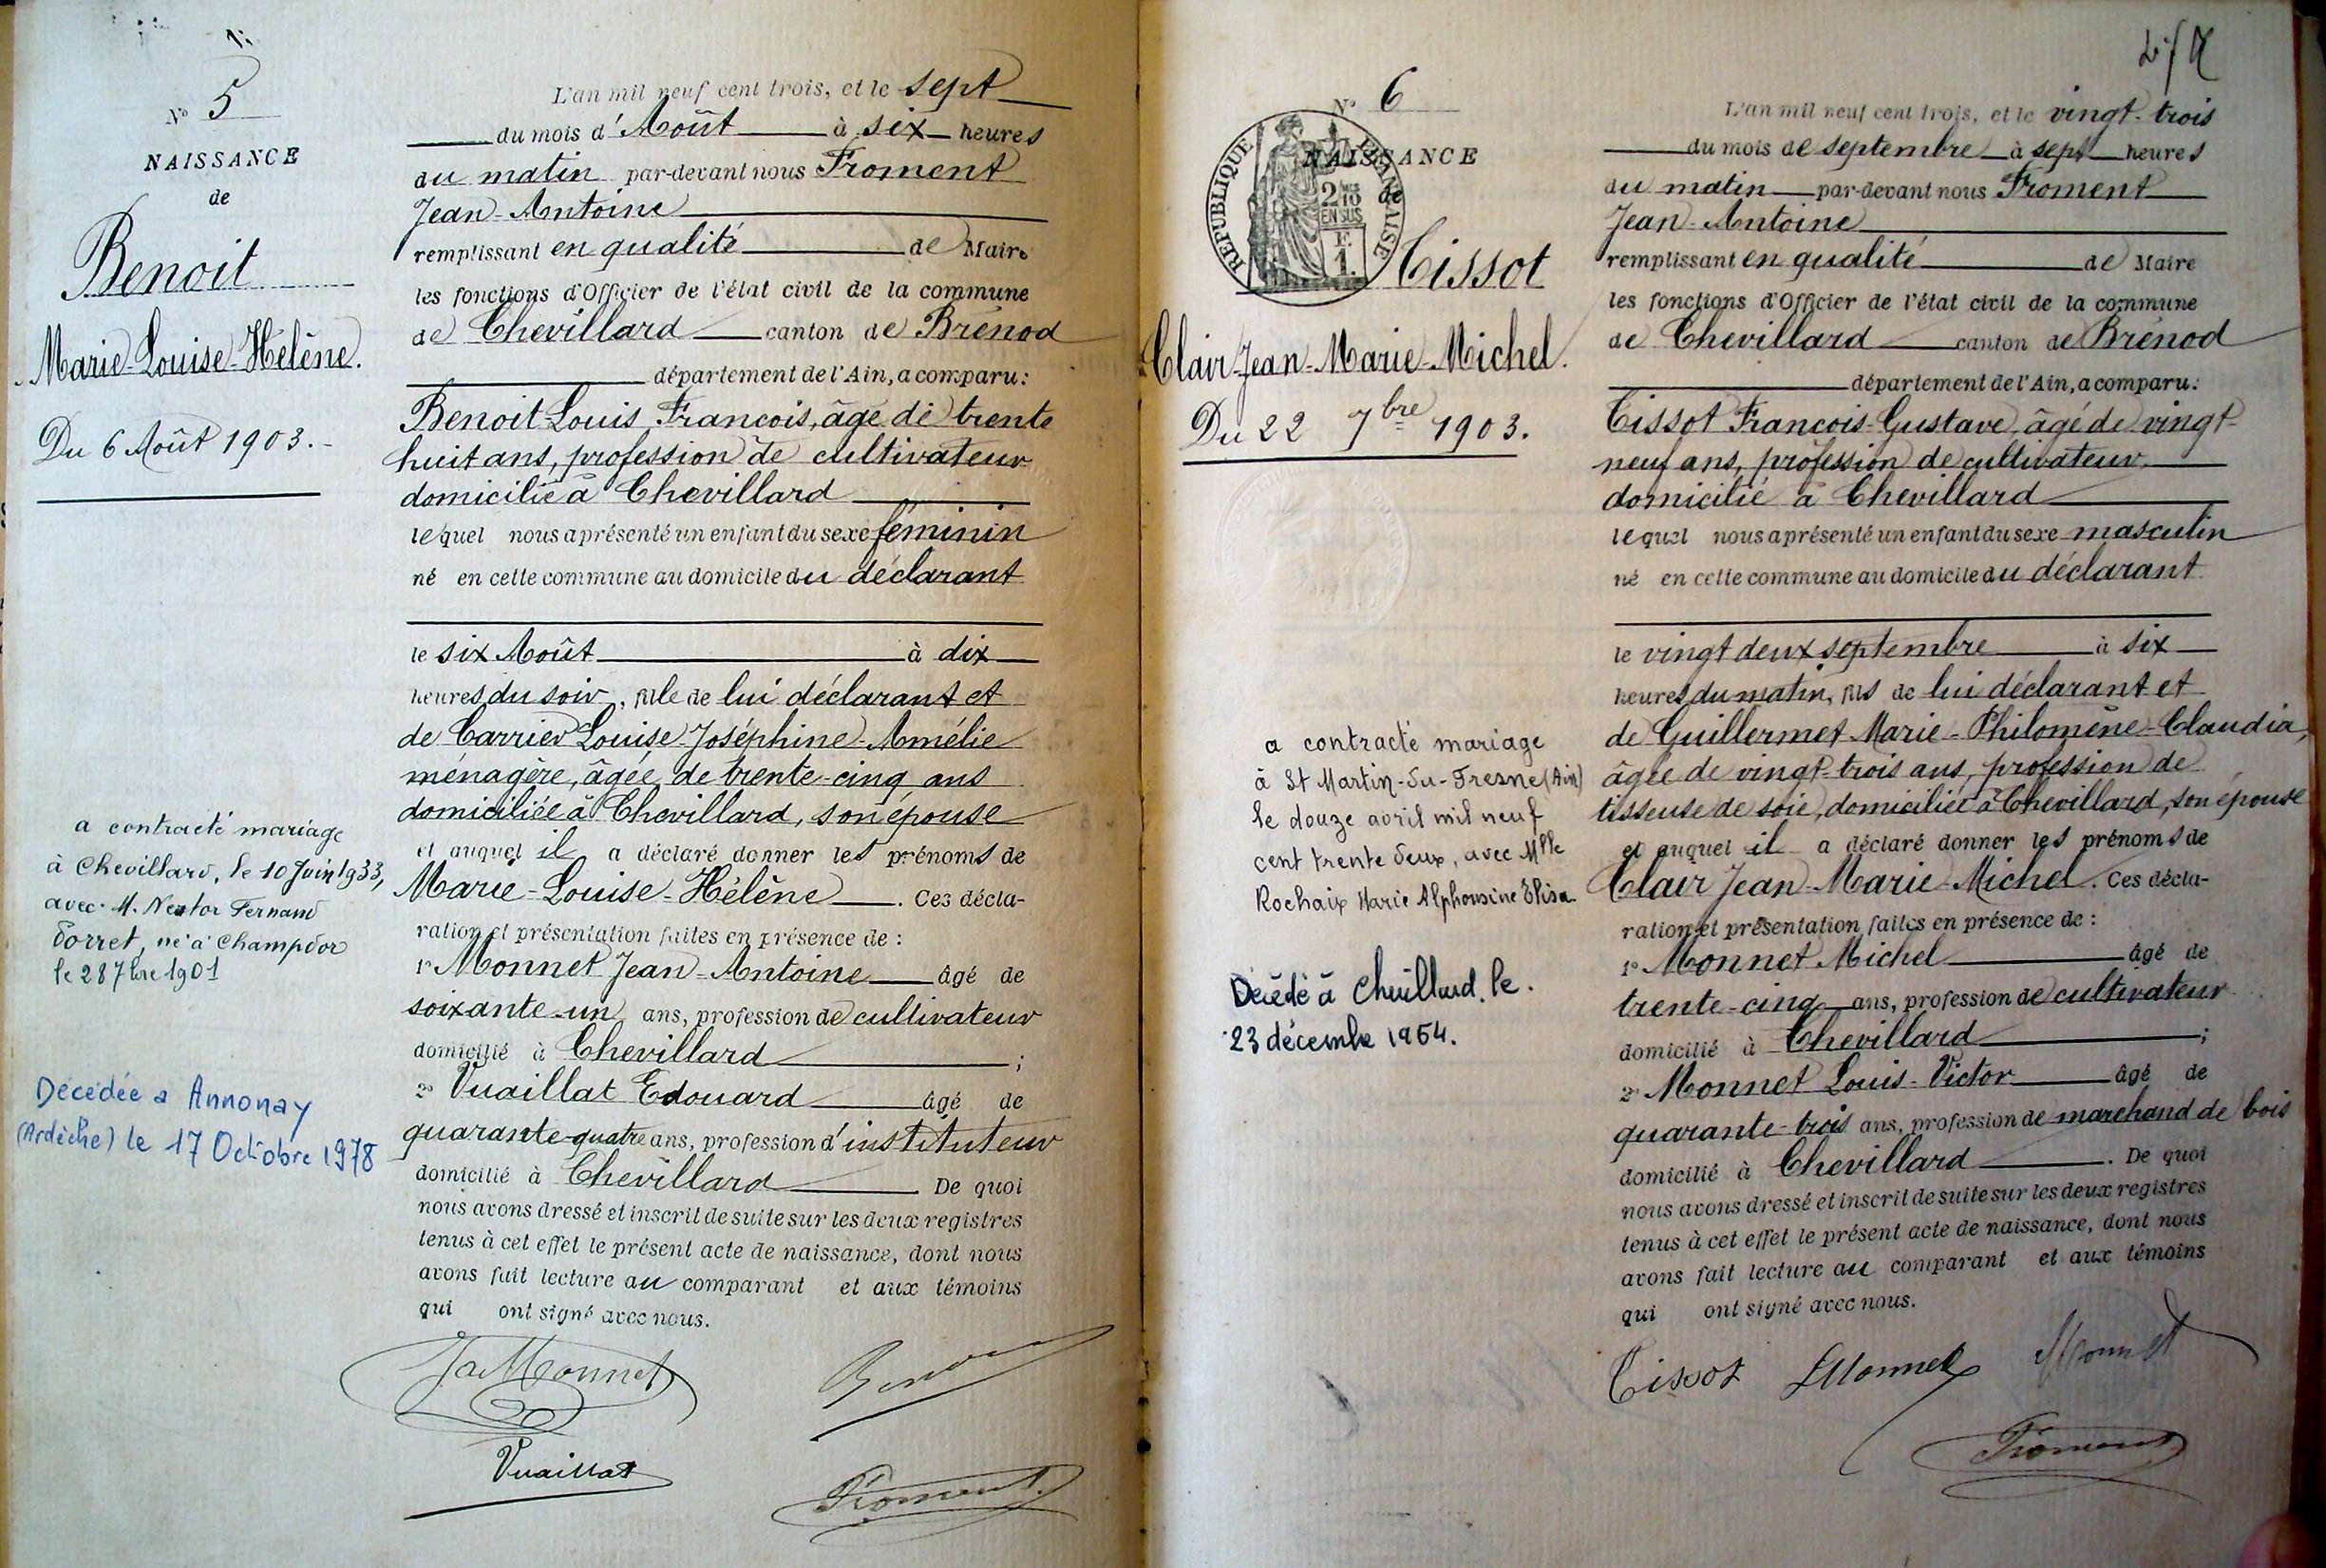 N° 5
NAISSANCE
de
Benoit
Marie-Louise-Hélène.
Du 6 Août 1903.-
a contracté mariage
à Chevillard, le 10 Juin 1933,
avec M. Nestor Fernand
Dorret, né à Champdor
le 28 7bre 1901
Décédée a Annonay
(Ardèche) le 17 Octobre 1978
L'an mil neuf cent trois, et le sept
du mois d'Août à six heures
du matin par-devant nous Froment
Jean-Antoine
remplissant en qualité de Maire
les fonctions d'Officier de l'état civil de la commune
de Chevillard canton de Brénod
département de l'Ain, a comparu:
Benoit Louis François, âgé de trente
huit ans, profession de cultivateur
domicilié à Chevillard
lequel nous a présenté un enfant du sexe féminin
né en cette commune au domicile du déclarant
le six Août à dix
heures du soir, fille de lui déclarant et
de Carrier Louise-Joséphine-Amélie
ménagère, âgée de trente-cinq ans
domiciliée à Chevillard, son épouse
et auquel il a déclaré donner les prénoms de
Marie-Louise-Hélène. Ces décla-
ration et présentation faites en présence de :
1° Monnet Jean-Antoine âgé de
soixante-un ans, profession de cultivateur
domicilié à Chevillard ;
2° Vuaillat Edouard âgé de
quarante-quatre ans, profession d'instituteur
domicilié à Chevillard. De quoi
nous avons dressé et inscrit de suite sur les deux registres
tenus à cet effet le présent acte de naissance, dont nous
avons fait lecture au comparant et aux témoins
qui ont signé avec nous.
Ja Monnet Benoit
Vuaillat Froment
N° 6
NAISSANCE
de
REPUBLIQUE FRANÇAISE
2/10
EN SUS
F.
1.
Tissot
Clair-Jean-Marie-Michel.
Du 22 7bre 1903.
a contracté mariage
à St Martin-du-Fresne (Ain)
le douze avril mil neuf
cent trente deux, avec Mlle
Rochaix Marie Alphonsine Elisa
Décédé à Chevillard. le.
23 décembre 1954.
L'an mil neuf cent trois, et le vingt-trois
du mois de septembre à sept heures
du matin par-devant nous Froment
Jean-Antoine
remplissant en qualité de Maire
les fonctions d'Officier de l'état civil de la commune
de Chevillard canton de Brénod
département de l'Ain, a comparu:
Tissot François-Gustave, âgé de vingt-
neuf ans, profession de cultivateur
domicilié à Chevillard
lequel nous a présenté un enfant du sexe masculin
né en cette commune au domicile du déclarant
le vingt deux septembre à six
heures du matin, fils de lui déclarant et
de Guillermet Marie-Philomène-Claudia,
âgée de vingt-trois ans, profession de
tisseuse de soie, domiciliée à Chevillard, son épouse
et auquel il a déclaré donner les prénoms de
Clair Jean-Marie-Michel. Ces décla-
ration et présentation faites en présence de :
1° Monnet Michel âgé de
trente-cinq ans, profession de cultivateur
domicilié à Chevillard ;
2° Monnet Louis-Victor âgé de
quarante-trois ans, profession de marchand de bois
domicilié à Chevillard. De quoi
nous avons dressé et inscrit de suite sur les deux registres
tenus à cet effet le présent acte de naissance, dont nous
avons fait lecture au comparant et aux témoins
qui ont signé avec nous.
Tissot LMonnet Monnet
Froment